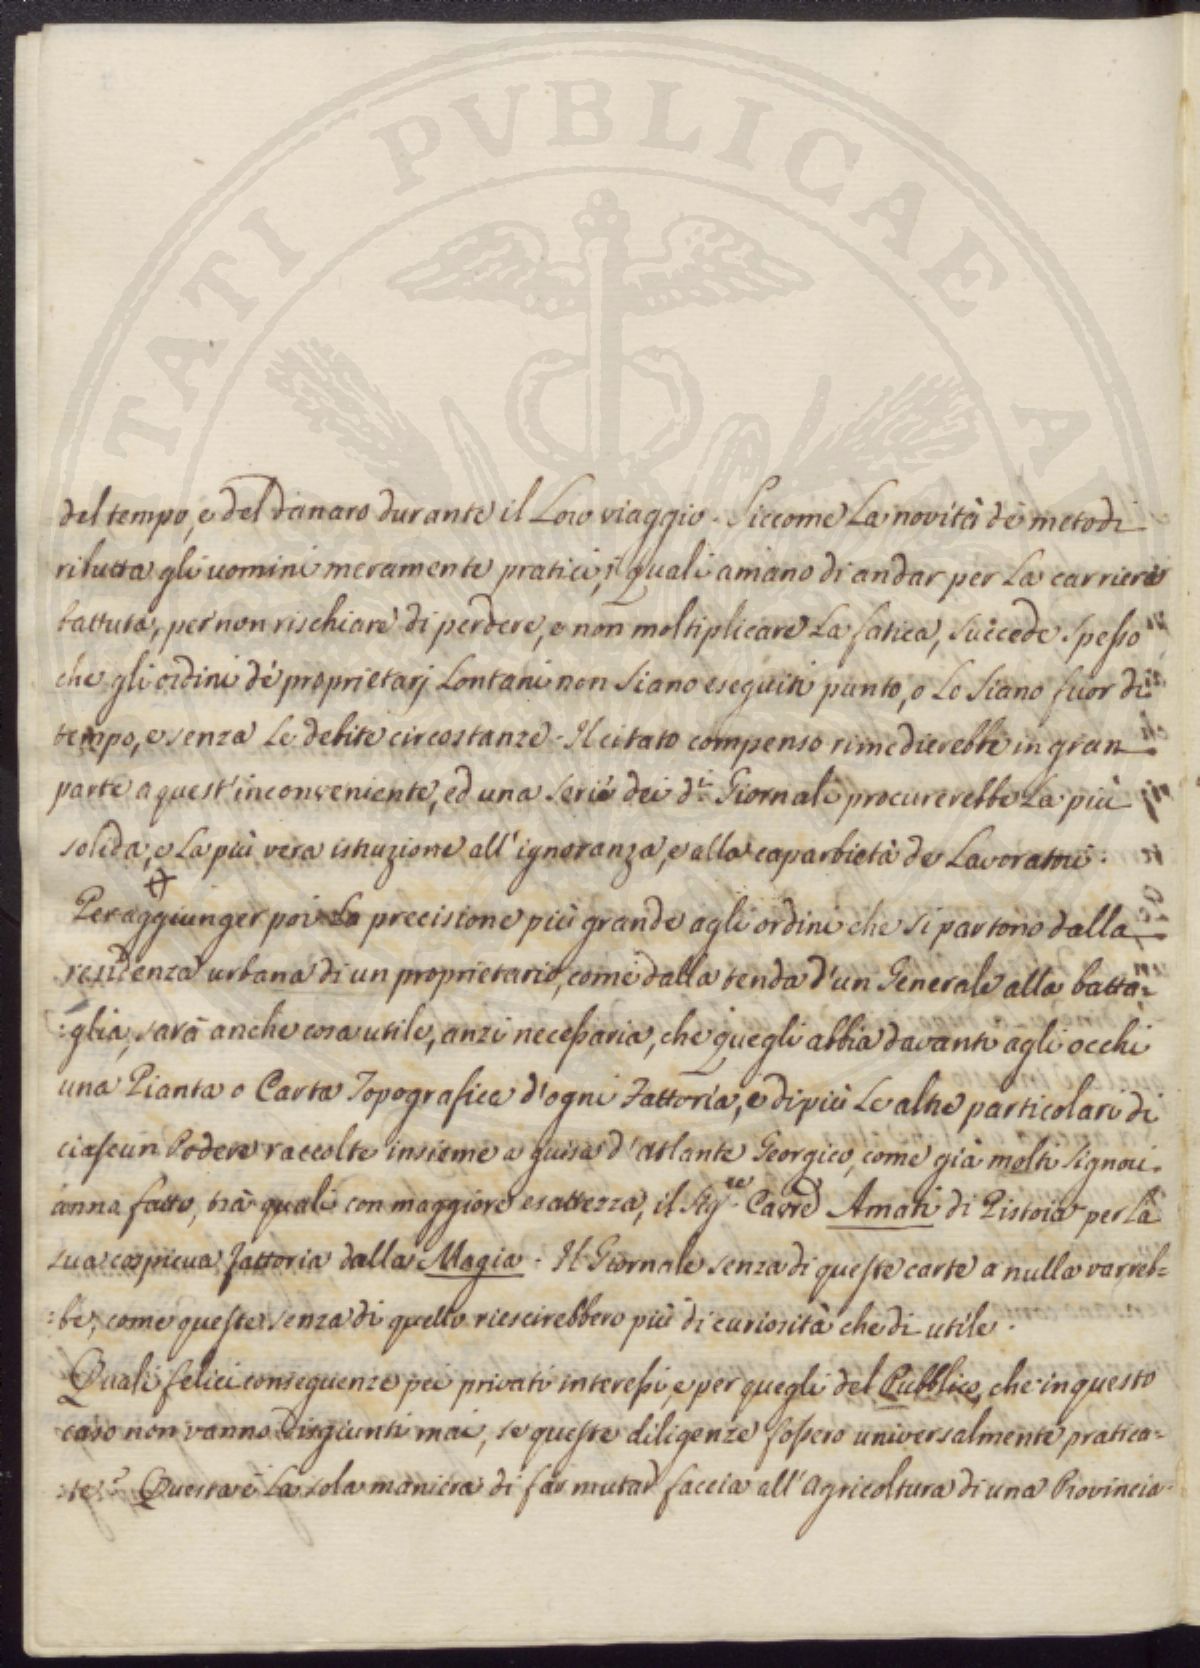 PROSPERITATI PVBLICAE AV
del tempo, e del danaro durante il Loro viaggio. Siccome La novità de' metodi
ributta gli uomini meramente pratici, i quali amano di andar per La carriera
battuta, per non rischiare di perdere, e non moltiplicare La fatica, succede spesso
che gli ordini de' proprietarj Lontani non siano eseguiti punto, o Lo siano fuor di
tempo, e senza Le debite circostanze. Il citato compenso rimedierebbe in gran
parte a quest'inconveniente, ed una serie dei d.i Giornali procurerebbe La più
solida, e La più vera istruzione all'ignoranza, e alla caparbietà de Lavoratori.
Per aggiunger poi La precisione più grande agli ordini che si partono dalla
residenza urbana di un proprietario, come dalla tenda d'un Generale alla batta=
:glia, sarà anche cosa utile, anzi necessaria, che quegli abbia davanti agli occhi
una Pianta o Carta Topografica d'ogni Fattoria, e di più Le altre particolari di
ciascun Podere raccolte insieme a guisa d'Atlante Georgico, come già molti Signori
anno fatto, trà quali con maggiore esattezza, il Sig.re Cav.re Amati di Pistoia per La
sua cospicua fattoria dalla Magia. Il Giornale senza di queste carte a nulla varreb=
:be, come queste senza di quello riescirebbero più di curiosità che di utile.
Quali felici conseguenze pei privati interessi, e per quegli del Pubblico, che in questo
caso non vanno disgiunti mai, se queste diligenze fossero universalmente pratica=
:te? Questa è La sola maniera di far mutar faccia all'Agricoltura di una Provincia.